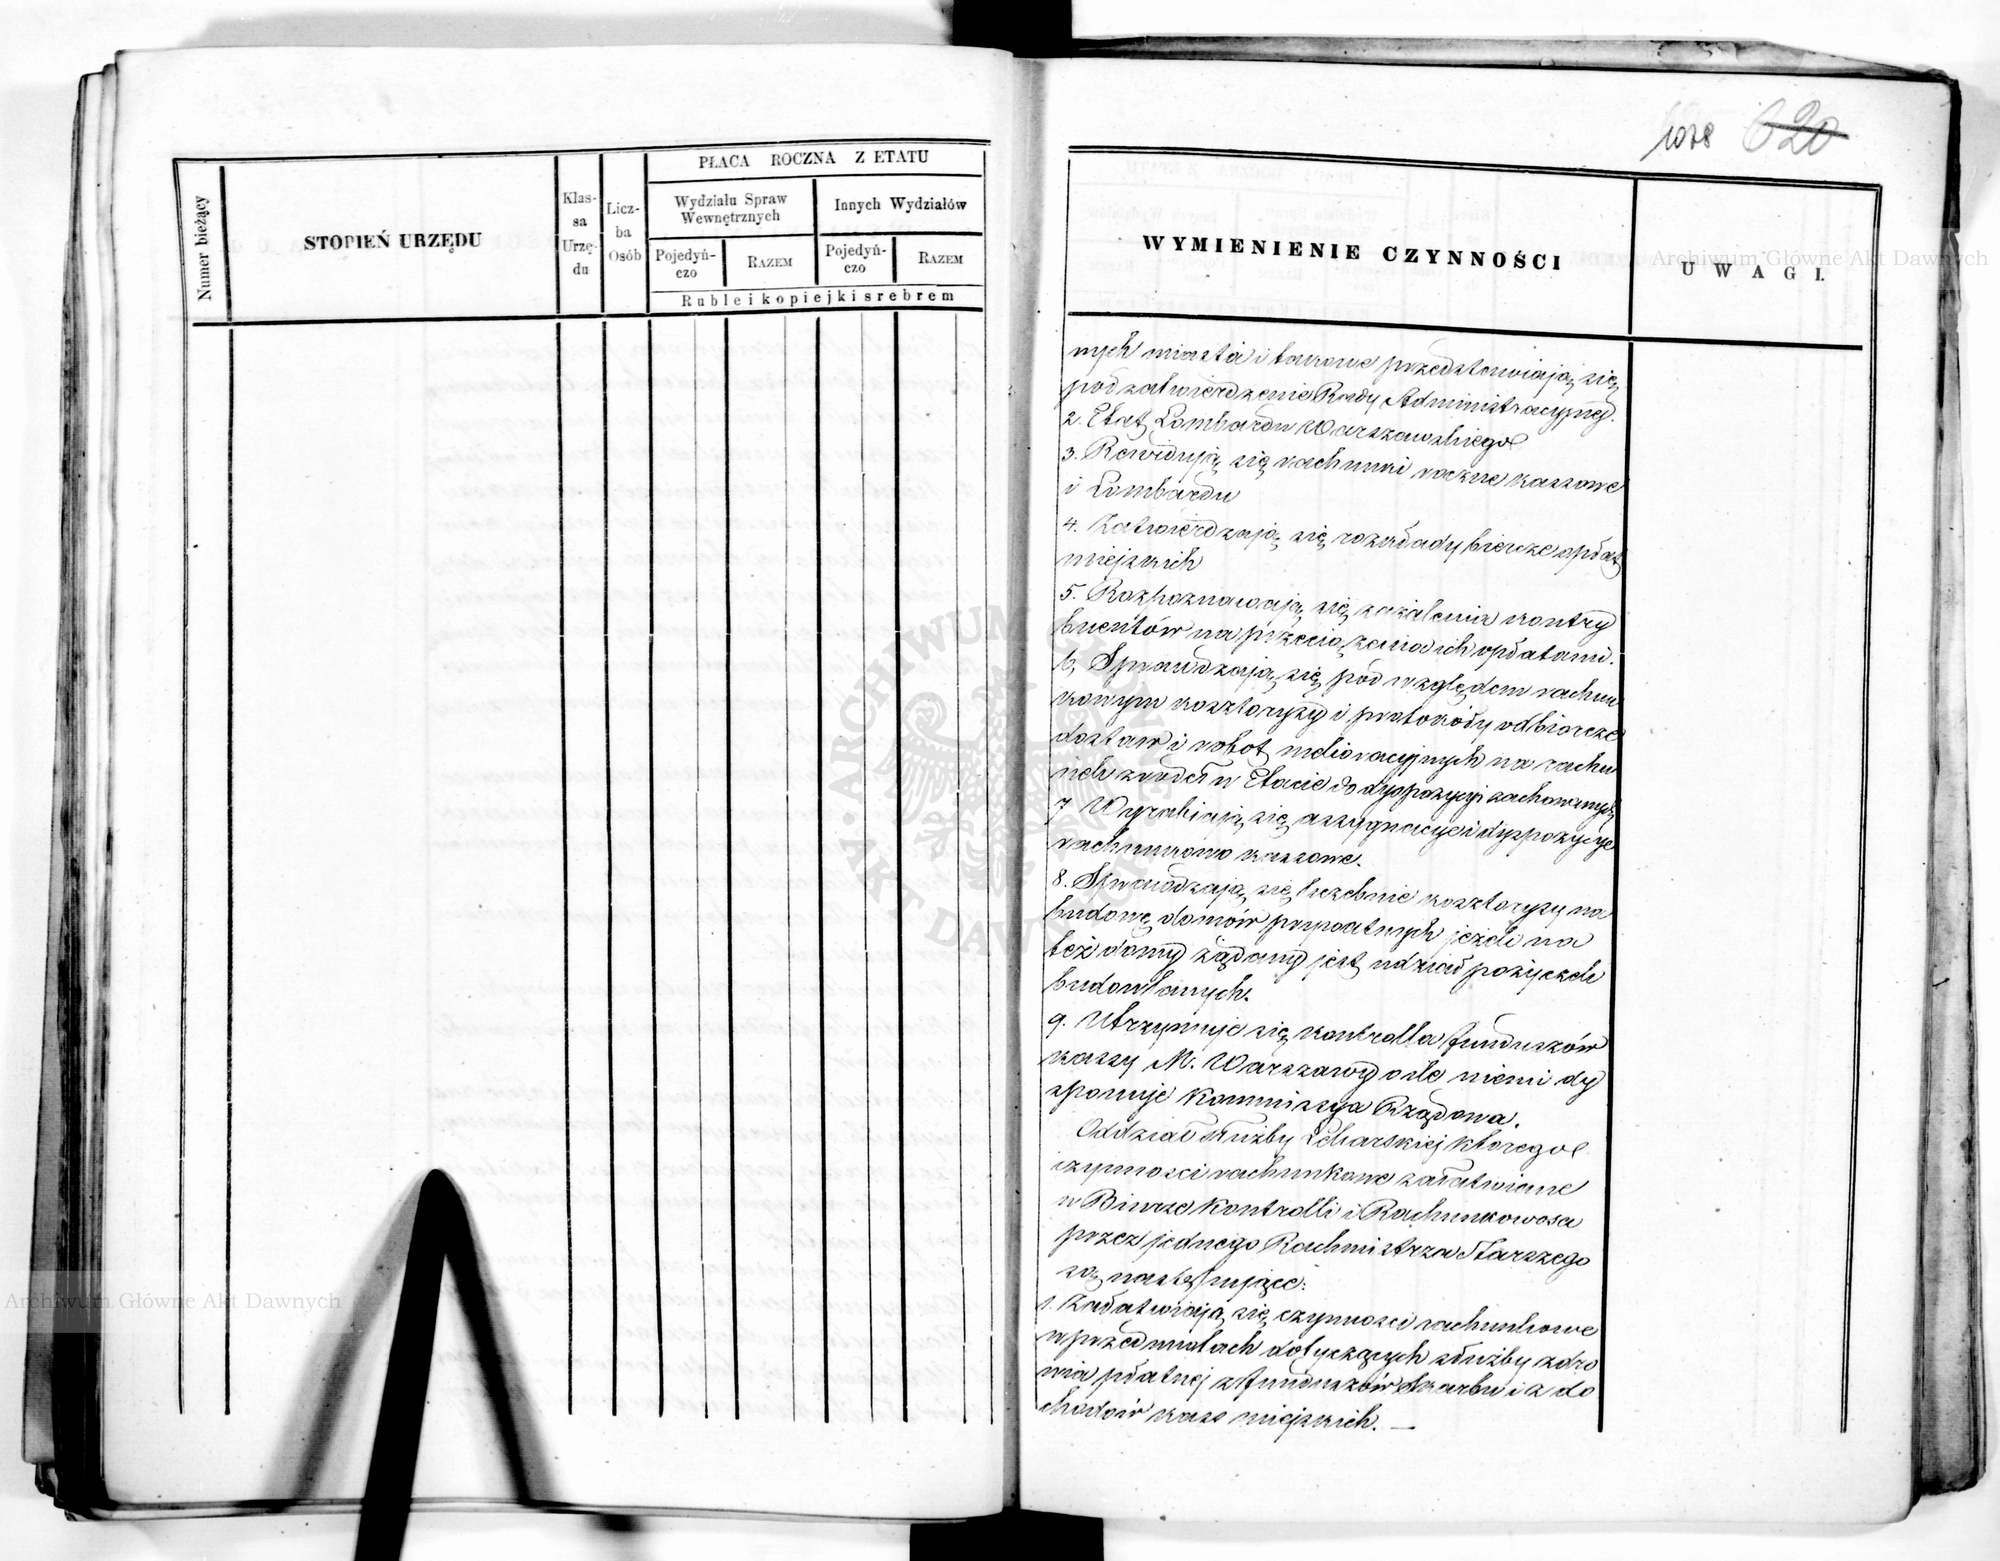 1028 620
Numer bieżący
STOPIEŃ URZĘDU
Klas-
sa
Urzę-
du
Licz-
ba
Osób
PŁACA ROCZNA Z ETATU
Wydziału Spraw
Wewnętrznych
Innych Wydziałów
Pojedyń-
czo
RAZEM
Pojedyń-
czo
RAZEM
Ruble i kopiejki srebrem
WYMIENIENIE CZYNNOŚCI
UWAGI.
nych miasta i takowe przedstawiają się
pod zatwierdzenie Rady Administracyjnej.
2. Etat Lombardu Warszawskiego
3. Rewidują się rachunki roczne kassowe
i Lombardu
4. Zatwierdzają się rozkłady biercze opłat
miejskich
5. Rozpoznawają się zażalenia kontry
buentów na przeciążenia ich opłatami.
6. Sprawdzają się pod względem rachun
kowym kosztorysy i protokóły odbiorcze
dostaw i robot melioracyjnych na rachu
nek źródeł w Etacie do dyspozycyi zachowanych
7 Wyrabiają się assygnacye i dyspozycye
rachunkowo kassowe.
8. Sprawdzają się liczebnie kosztorysy na
budowę domów prywatnych jeżeli na
też domy żądany jest udział pożyczek
budowlanych.
9. Utrzymuje się kontrolla funduszów
kassy M. Warszawy o ile niemi dy
sponuje Kommissya Rządowa.
Oddział służby Lekarskiej którego
czynności rachunkowe załatwiane
w Biurze Kontrolli i Rachunkowości
przez jednego Rachmistrza Starszego
są następujące:
1. Załatwiają się czynności rachunkowe
w przedmiotach dotyczących służby zdro
wia płatnej z funduszów Skarbu i z do
chodów kass miejskich. —
ARCHIWUM GŁÓWNE AKT DAWNYCH
Archiwum Główne Akt Dawnych
Archiwum Główne Akt Dawnych